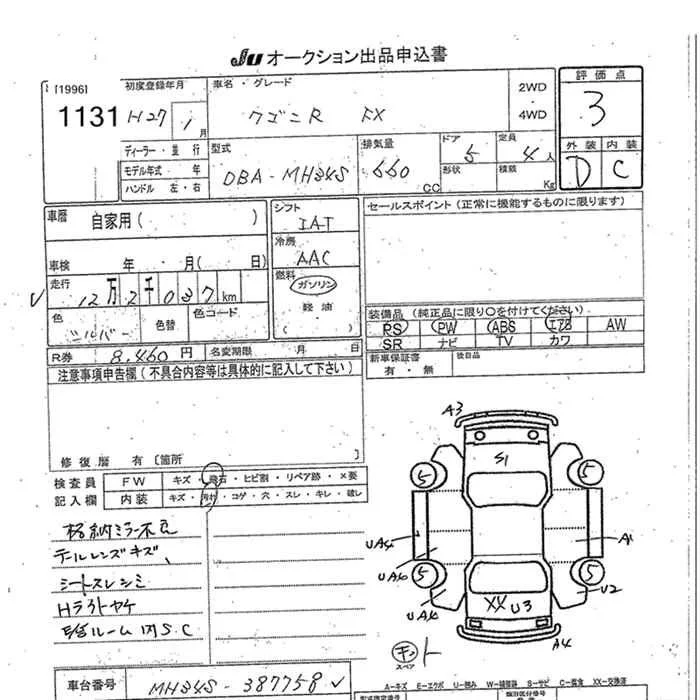 JU オークション出品申込書
[1996]
1131
初度登録年月
H27 1月
車名・グレード
ワゴンR FX
2WD
・
4WD
評価点
3
外装 内装
D C
ディーラー・並行
モデル年式 年
ハンドル 左・右
型式
DBA-MH34S
排気量
660 CC
ドア
5
形状
定員
4人
積載
Kg
車暦
自家用( )
車検 年 月( 日)
走行
12万2千037km
色
シルバー
色替
色コード
シフト
IAT
冷房
AAC
燃料
ガソリン
・
軽油
( )
セールスポイント(正常に機能するものに限ります)
装備品(純正品に限り○を付けてください)
PS PW ABS エアB AW
SR ナビ TV カワ
新車保証書
有・無
後日品
R券 8,460円
名変期限 月 日
注意事項申告欄(不具合内容等は具体的に記入して下さい)
修復暦 有〔箇所 〕
検査員
記入欄
FW キズ・飛石・ヒビ割・リペア跡・×要
内装 キズ・汚れ・コゲ・穴・スレ・キレ・破レ
格納ミラー不良
テールレンズキズ、
シートスレシミ
Hライトヤケ
ルーム内S.C
A3
S1
5
5
UA4
A1
UA6
5
5
UA6
U2
XX U3
A4
キット
スペア
車台番号
MH34S-387758
A-キズ E-エクボ U-凹み W-補修跡 S-サビ C-腐食 XX-交換済